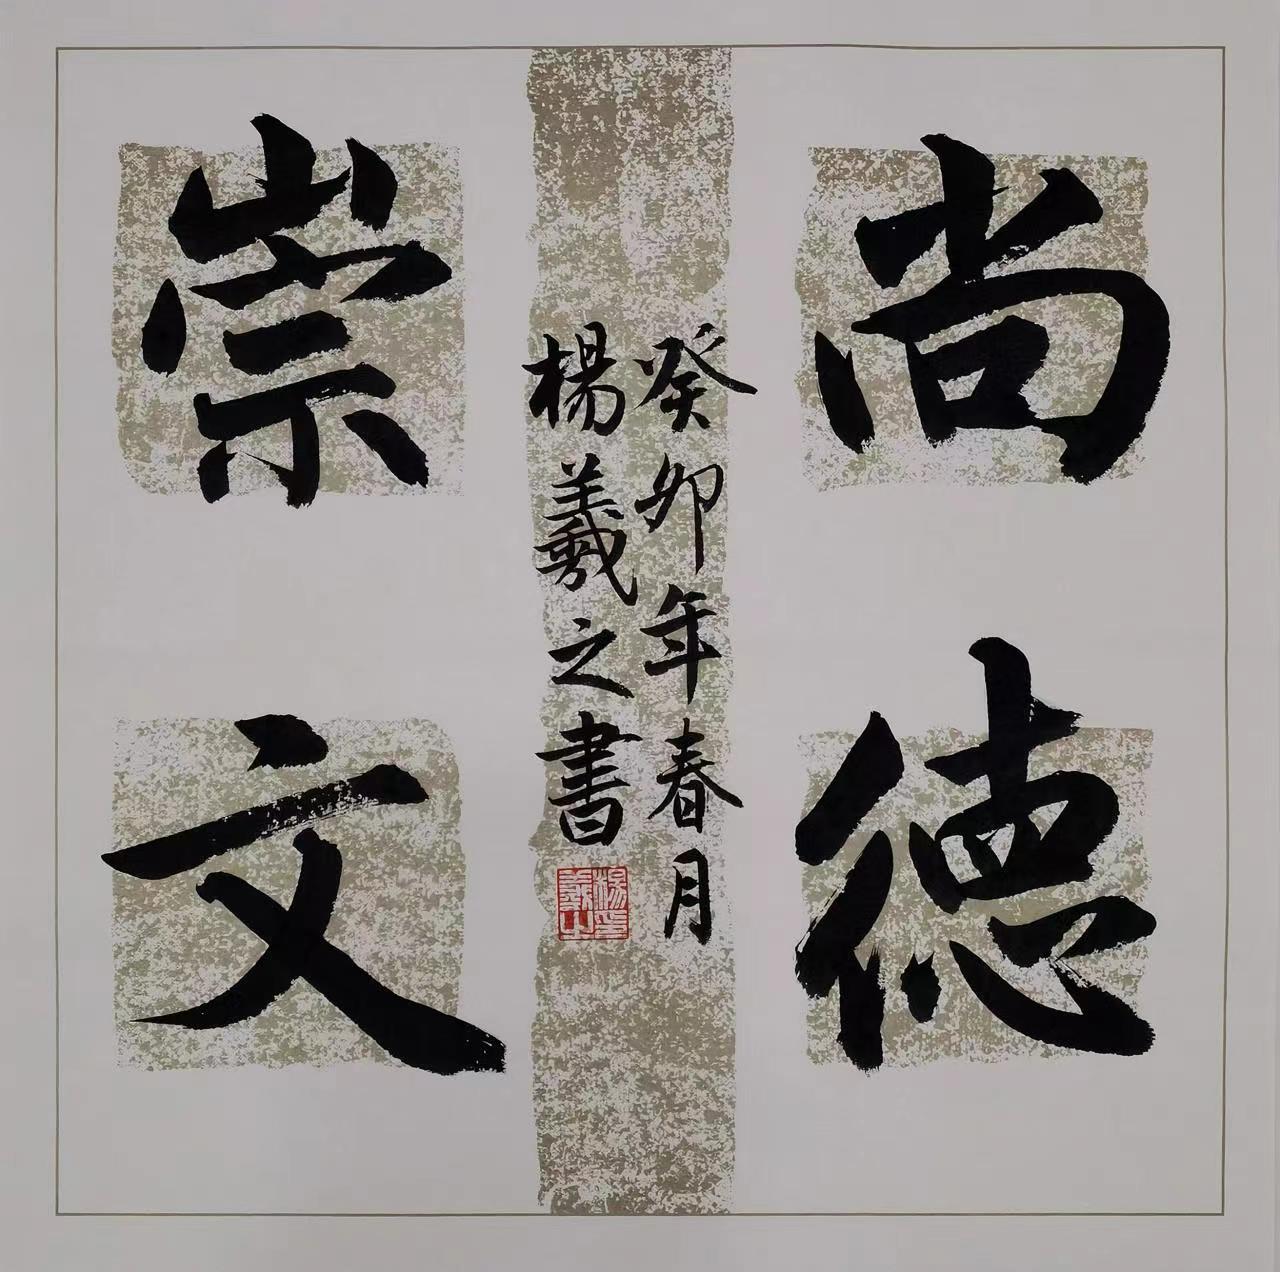 尚德
崇文
癸卯年春月
楊羲之書
楊羲之印